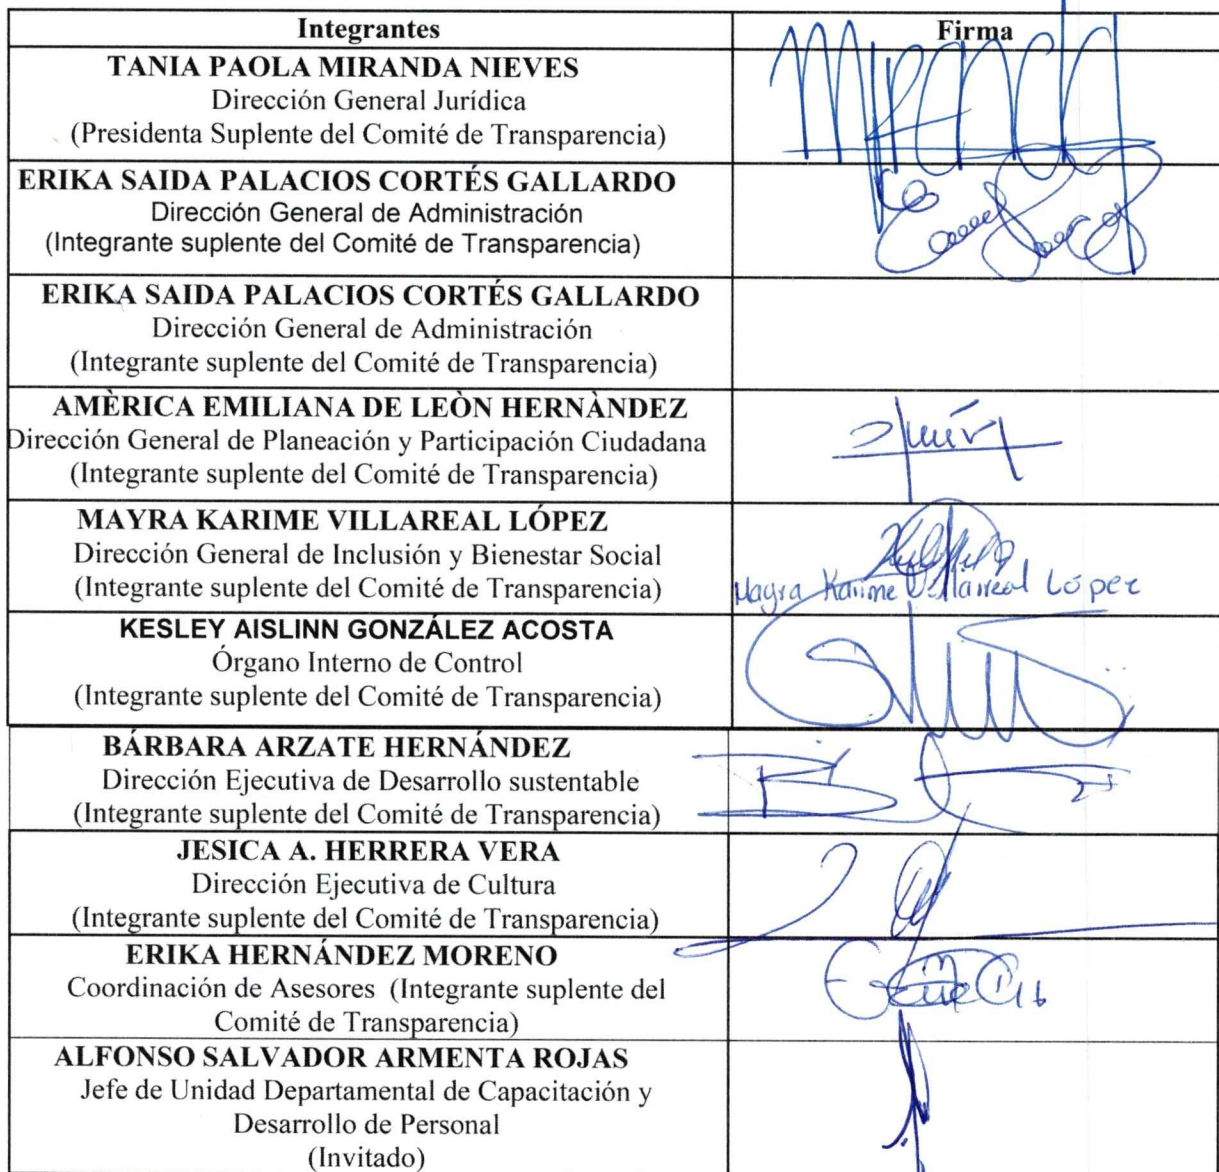 Integrantes
Firma
TANIA PAOLA MIRANDA NIEVES
Dirección General Jurídica
(Presidenta Suplente del Comité de Transparencia)
Miranda
ERIKA SAIDA PALACIOS CORTÉS GALLARDO
Dirección General de Administración
(Integrante suplente del Comité de Transparencia)
ERIKA SAIDA PALACIOS CORTÉS GALLARDO
Dirección General de Administración
(Integrante suplente del Comité de Transparencia)
AMÈRICA EMILIANA DE LEÒN HERNÀNDEZ
Dirección General de Planeación y Participación Ciudadana
(Integrante suplente del Comité de Transparencia)
MAYRA KARIME VILLAREAL LÓPEZ
Dirección General de Inclusión y Bienestar Social
(Integrante suplente del Comité de Transparencia)
Mayra Karime Villarreal López
KESLEY AISLINN GONZÁLEZ ACOSTA
Órgano Interno de Control
(Integrante suplente del Comité de Transparencia)
BÁRBARA ARZATE HERNÁNDEZ
Dirección Ejecutiva de Desarrollo sustentable
(Integrante suplente del Comité de Transparencia)
JESICA A. HERRERA VERA
Dirección Ejecutiva de Cultura
(Integrante suplente del Comité de Transparencia)
ERIKA HERNÁNDEZ MORENO
Coordinación de Asesores (Integrante suplente del
Comité de Transparencia)
ALFONSO SALVADOR ARMENTA ROJAS
Jefe de Unidad Departamental de Capacitación y
Desarrollo de Personal
(Invitado)